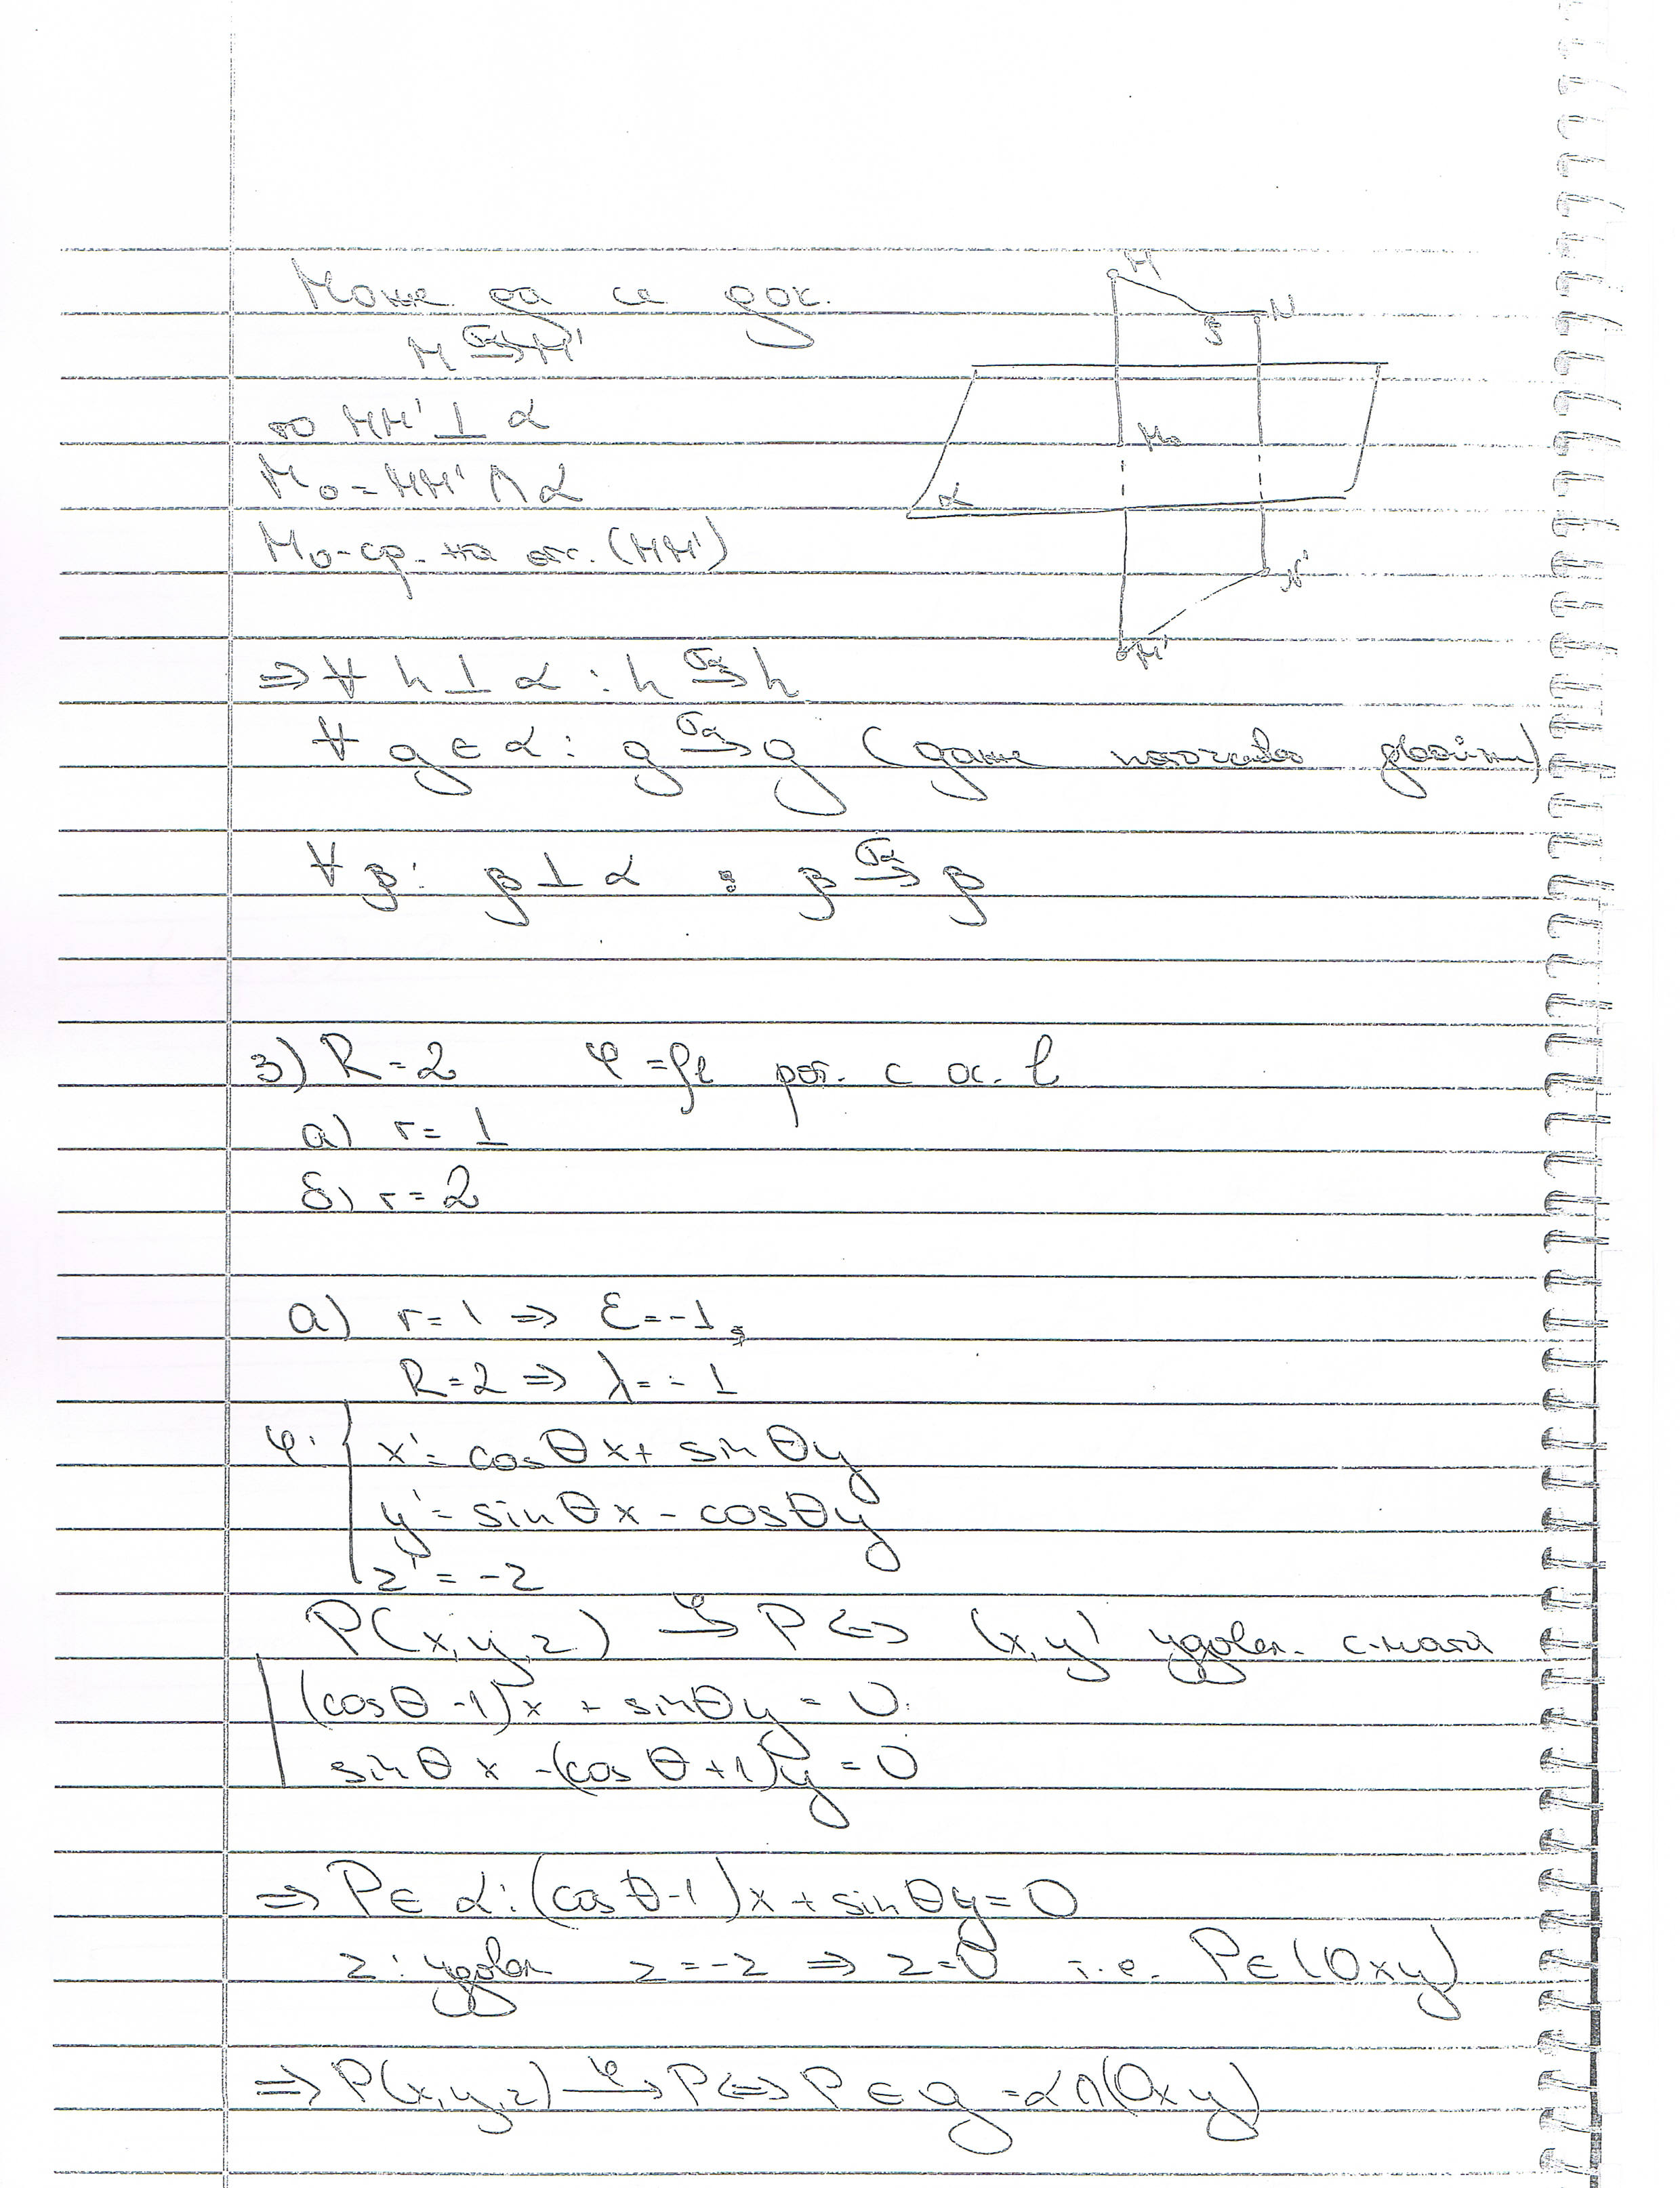 Може да се док.
M →(σα) M'
то MM' ⊥ α
M₀ = MM' ∩ α
M₀ - ср. на отс. (MM')
M
N
S
M₀
α
N'
M'
⇒ ∀ h ⊥ α : h →(σα) h
∀ g ∈ α : g →(σα) g (даже поточково двойни)
∀ β : β ⊥ α : β →(σα) β
3) R = 2 φ = ρℓ рот. с ос. ℓ
а) r = 1
б) r = 2
а) r = 1 ⇒ ε = -1,
R = 2 ⇒ λ = -1
φ: { x' = cosθx + sinθy
y' = sinθx - cosθy
z' = -z
P(x,y,z) →(φ) P ⇔ (x,y) удовл. с-мата
| (cosθ -1)x + sinθy = 0
sinθx -(cosθ +1)y = 0
⇒ P ∈ α: (cosθ-1)x + sinθy = 0
z: удовл z = -z ⇒ z = 0 т.е. P ∈ (Oxy)
⇒ P(x,y,z) →(φ) P ⇔ P ∈ g = α ∩ (Oxy)